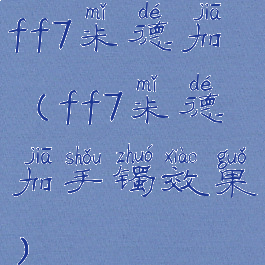 mǐ dé jiā
ff7米德加
mǐ dé
(ff7米德
jiā shǒu zhuó xiào guǒ
加手镯效果
)